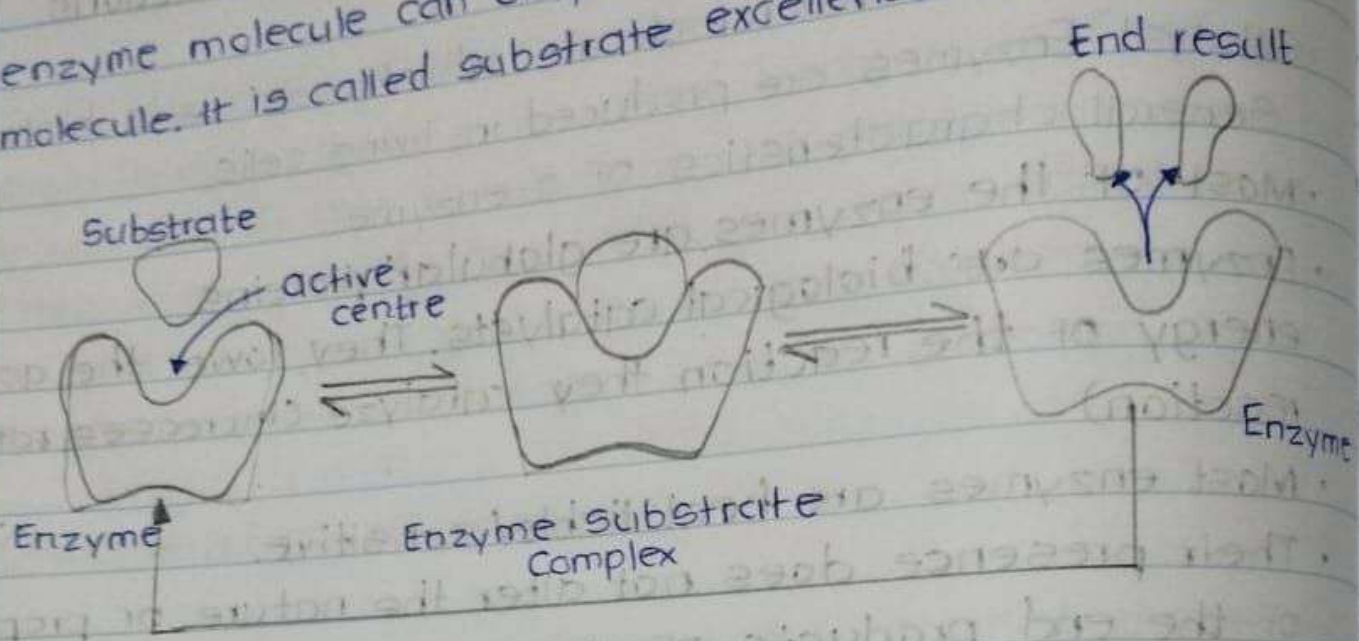 enzyme molecule can
molecule. It is called substrate
End result
Substrate
active
centre
Enzyme
Enzyme substrate
Complex
Enzyme